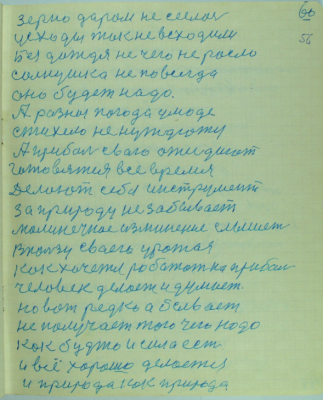 56
зерно даром не сеелои
усходы так не всходили
Без дождя не чего не росло
солнушка не повсегда
оно будет надо.
А разны погода уmоде
стихело не нуждному
А прибол сваго ожидают
готовятся все время
Делоют себа инструмент
За природу не забывает
молинечкое изминение слышет
В ползу сваего урожая
Как хочетя роботат на прибал
человек делоет и думает.
но вот редко а бывает
не получает того чего надо
Как будто и сила ест.
и всё хорошо делоется
и природа как природа